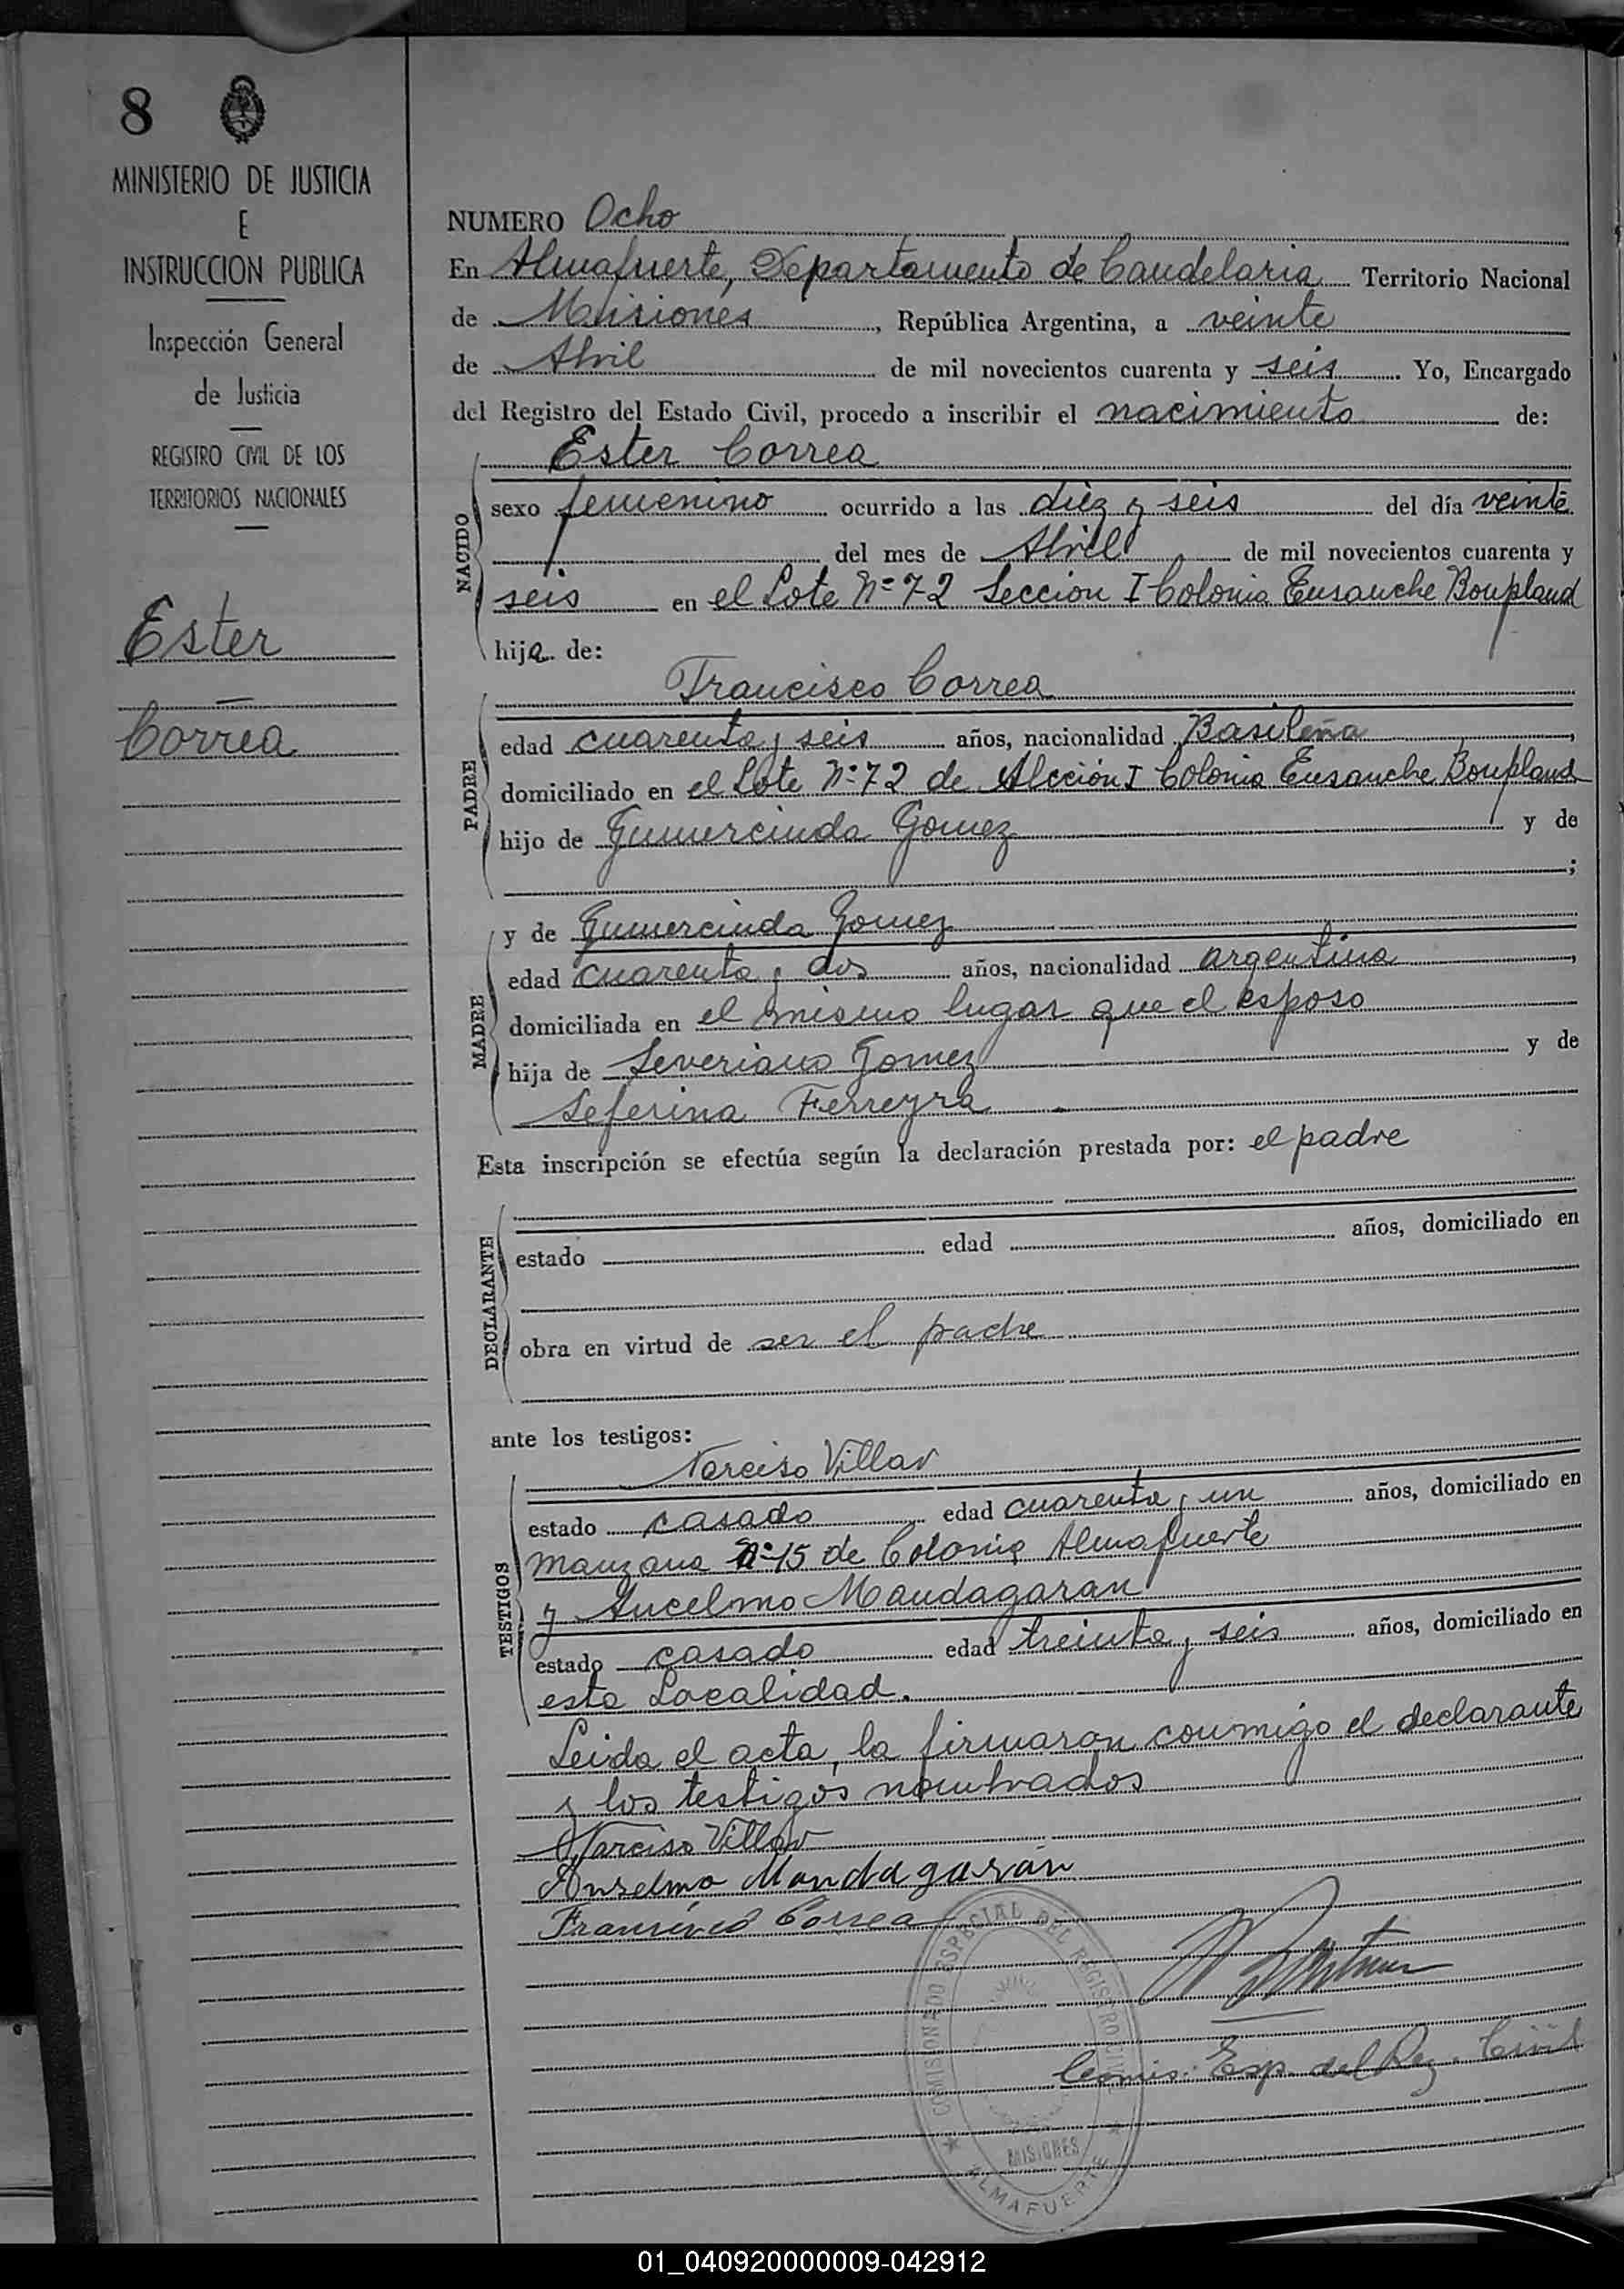 8
MINISTERIO DE JUSTICIA
E
INSTRUCCION PUBLICA
Inspección General
de Justicia
REGISTRO CIVIL DE LOS
TERRITORIOS NACIONALES
Ester
Correa
NUMERO Ocho
En Almafuerte, Departamento de Candelaria Territorio Nacional
de Misiones, República Argentina, a veinte
de Abril de mil novecientos cuarenta y seis. Yo, Encargado
del Registro del Estado Civil, procedo a inscribir el nacimiento de:
NACIDO
Ester Correa
sexo femenino ocurrido a las diez y seis del día veinte
del mes de Abril de mil novecientos cuarenta y
seis en el Lote Nº 72 Seccion I Colonia Ensanche Bonpland
hija de:
PADRE
Francisco Correa
edad cuarenta y seis años, nacionalidad Basileña,
domiciliado en el Lote Nº 72 de Sección I Colonia Ensanche Bonpland
hijo de Gumercinda Gomez y de
;
MADRE
y de Gumercinda Gomez
edad cuarenta y dos años, nacionalidad argentina,
domiciliada en el mismo lugar que el esposo
hija de Severiano Gomez y de
Seferina Ferreyra
Esta inscripción se efectúa según la declaración prestada por: el padre
DECLARANTE
estado edad años, domiciliado en
obra en virtud de ser el padre
ante los testigos:
TESTIGOS
Narciso Villar
estado casado edad cuarenta y un años, domiciliado en
manzana Nº 15 de Colonia Almafuerte
y Ancelmo Mandagaran
estado casado edad treinta y seis años, domiciliado en
esta Localidad.
Leida el acta, la firmaron conmigo el declarante
y los testigos nombrados
Narciso Villar
Anselmo Mandagarán
Francisco Correa
COMISIONADO ESPECIAL DEL REGISTRO CIVIL
MISIONES
ALMAFUERTE
Comis. Esp. del Reg. Civil
01_040920000009-042912